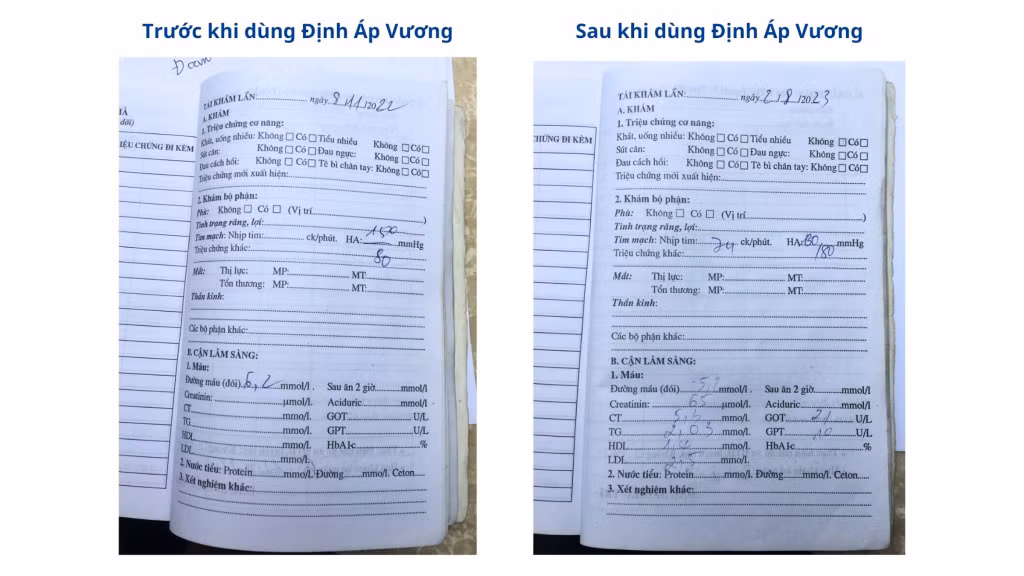 Trước khi dùng Định Áp Vương
Đoan
HÀ
đối)
IỆU CHỨNG ĐI KÈM
TÁI KHÁM LẦN: ngày 8/11/2022
A. KHÁM
1. Triệu chứng cơ năng:
Khát, uống nhiều: Không □ Có □ Tiểu nhiều Không □ Có □
Sút cân: Không □ Có □ Đau ngực: Không □ Có □
Đau cách hồi: Không □ Có □ Tê bì chân tay: Không □ Có □
Triệu chứng mới xuất hiện:
2. Khám bộ phận:
Phù: Không □ Có □ (Vị trí )
Tình trạng răng, lợi:
Tim mạch: Nhịp tim: ck/phút. HA: 150 mmHg
80
Triệu chứng khác:
Mắt: Thị lực: MP: MT:
Tổn thương: MP: MT:
Thần kinh:
Các bộ phận khác:
B. CẬN LÂM SÀNG:
1. Máu:
Đường máu (đói) 6,2 mmol/l . Sau ăn 2 giờ mmol/l
Creatinin: µmol/l. Aciduric mmol/l
CT mmo/l. GOT U/L
TG mmo/l. GPT U/L
HDL mmo/l. HbA1c %
LDL mmo/l.
2. Nước tiểu: Protein mmo/l. Đường mmo/l. Ceton
3. Xét nghiệm khác:
Sau khi dùng Định Áp Vương
CHỨNG ĐI KÈM
TÁI KHÁM LẦN: ngày 2/8/2023
A. KHÁM
1. Triệu chứng cơ năng:
Khát, uống nhiều: Không □ Có □ Tiểu nhiều Không □ Có □
Sút cân: Không □ Có □ Đau ngực: Không □ Có □
Đau cách hồi: Không □ Có □ Tê bì chân tay: Không □ Có □
Triệu chứng mới xuất hiện:
2. Khám bộ phận:
Phù: Không □ Có □ (Vị trí )
Tình trạng răng, lợi:
Tim mạch: Nhịp tim: 74 ck/phút. HA: 130 mmHg
/80
Triệu chứng khác:
Mắt: Thị lực: MP: MT:
Tổn thương: MP: MT:
Thần kinh:
Các bộ phận khác:
B. CẬN LÂM SÀNG:
1. Máu:
Đường máu (đói) 5,2 mmol/l . Sau ăn 2 giờ mmol/l
Creatinin: 65 µmol/l. Aciduric mmol/l
CT mmo/l. GOT 21 U/L
TG 2,03 mmo/l. GPT 10 U/L
HDL mmo/l. HbA1c %
LDL mmo/l.
2. Nước tiểu: Protein mmo/l. Đường mmo/l. Ceton
3. Xét nghiệm khác: